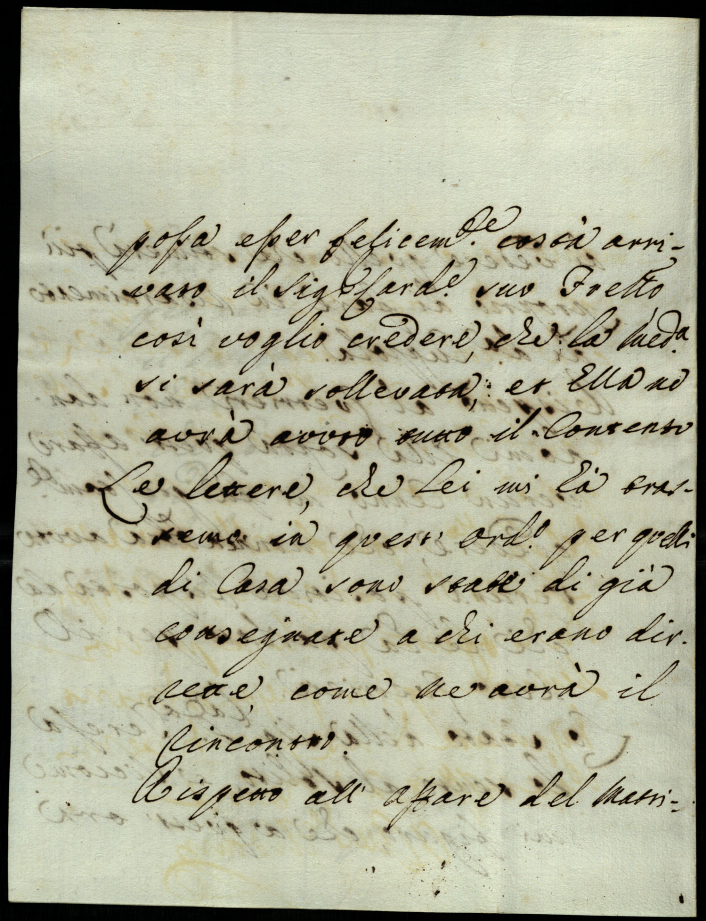 possa esser felicem.te costà arri-
vato il Sig.r Card.e suo Fretto,
così voglio credere, che la Med.a
si sarà sollevata, et Ella ne
avrà avuto tutto il Contento
Le lettere, che Lei mi hà tras-
messe in quest' Ord.o per quelli
di Casa sono statte di già
consegnate a chi erano dir-
rette, come ne avrà il
rincontro.
Rispetto all' affare del Matri-